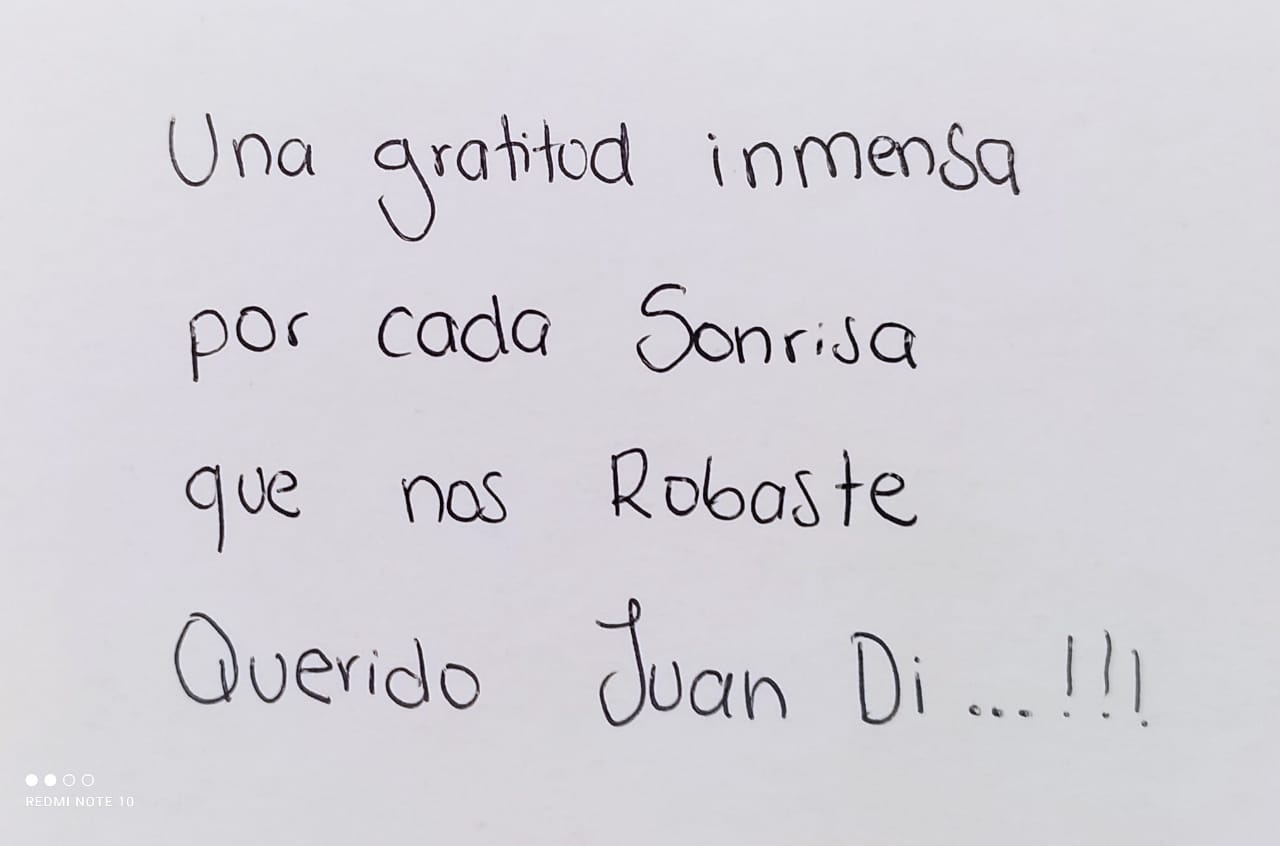 Una gratitud inmensa
por cada Sonrisa
que nos Robaste
Querido Juan Di...!!!
REDMI NOTE 10